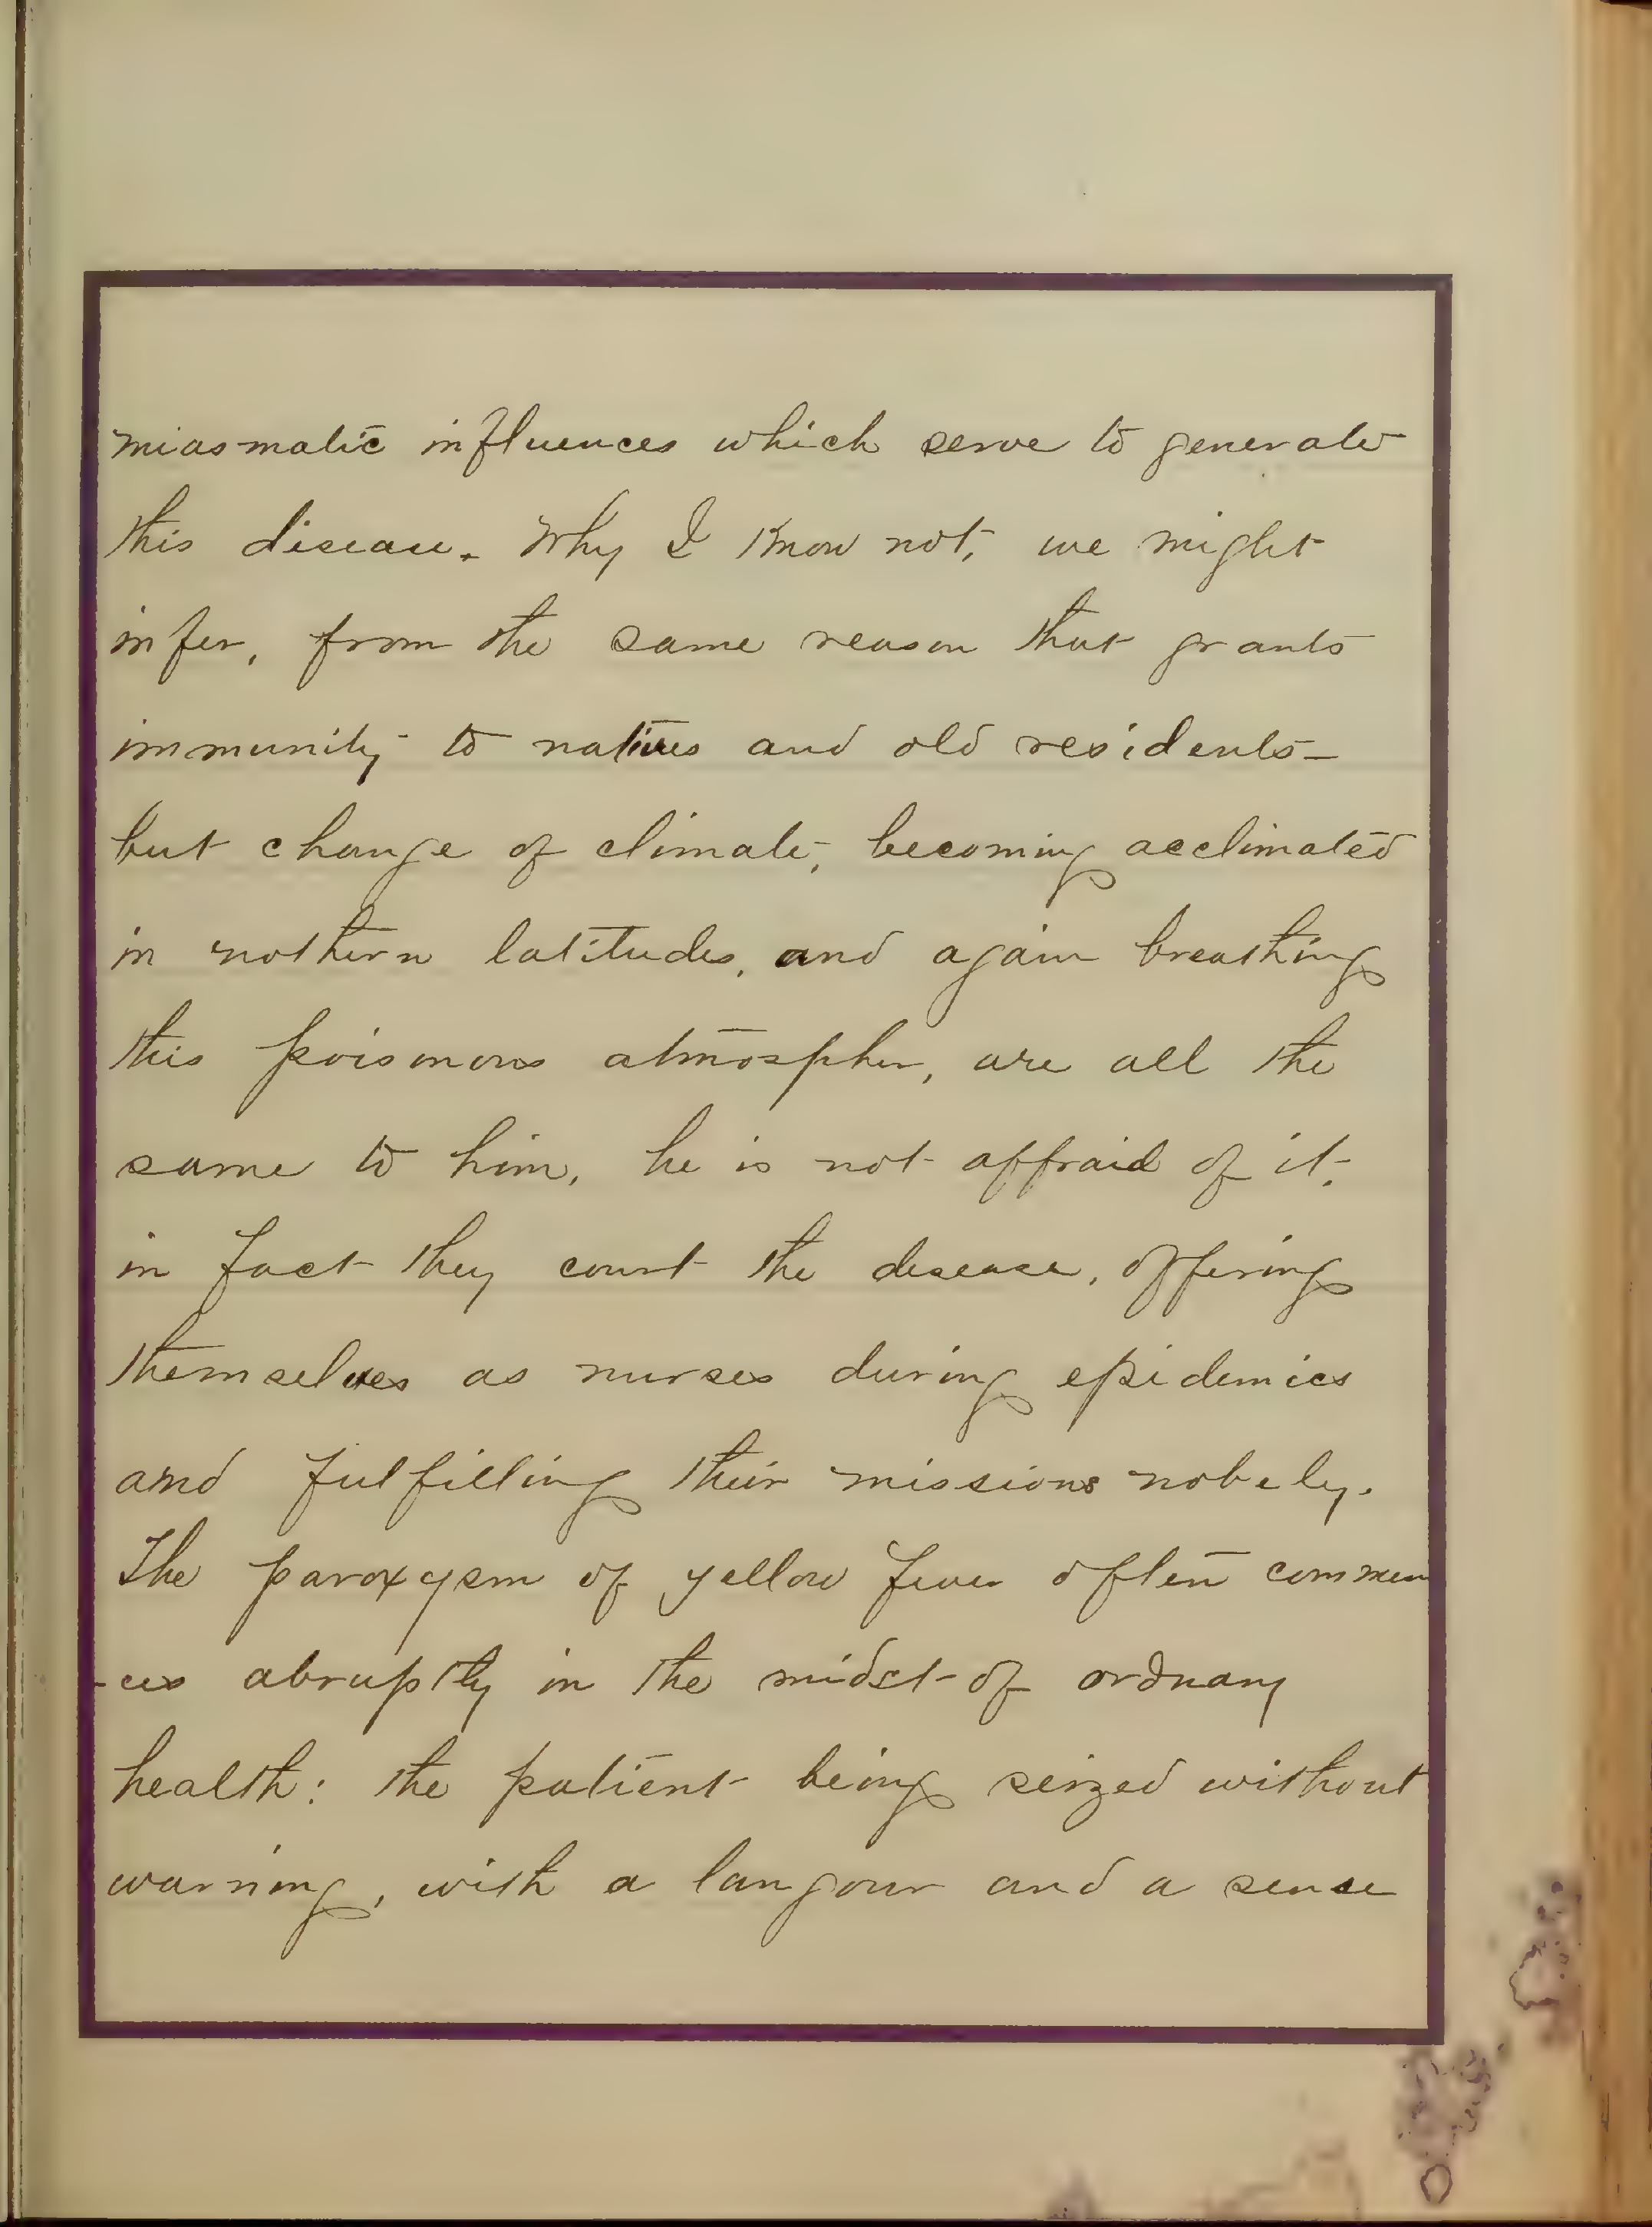 miasmatic influences which serve to generate
this disease. Why I know not, we might
infer, from the same reason that grants
immunity to natives and old residents-
but change of climate, becoming acclimated
in nothern latitudes, and again breathing
this poisonous atmospher, are all the
same to him, he is not affraid of it,
in fact they court the disease, offering
themselves as nurses during epidemics
and fulfilling their missions nobely.
The paroxysm of yellow fever often commen
-ces abruptly in the midst of ordnary
health: the patient being seized without
warning, with a langour and a sense